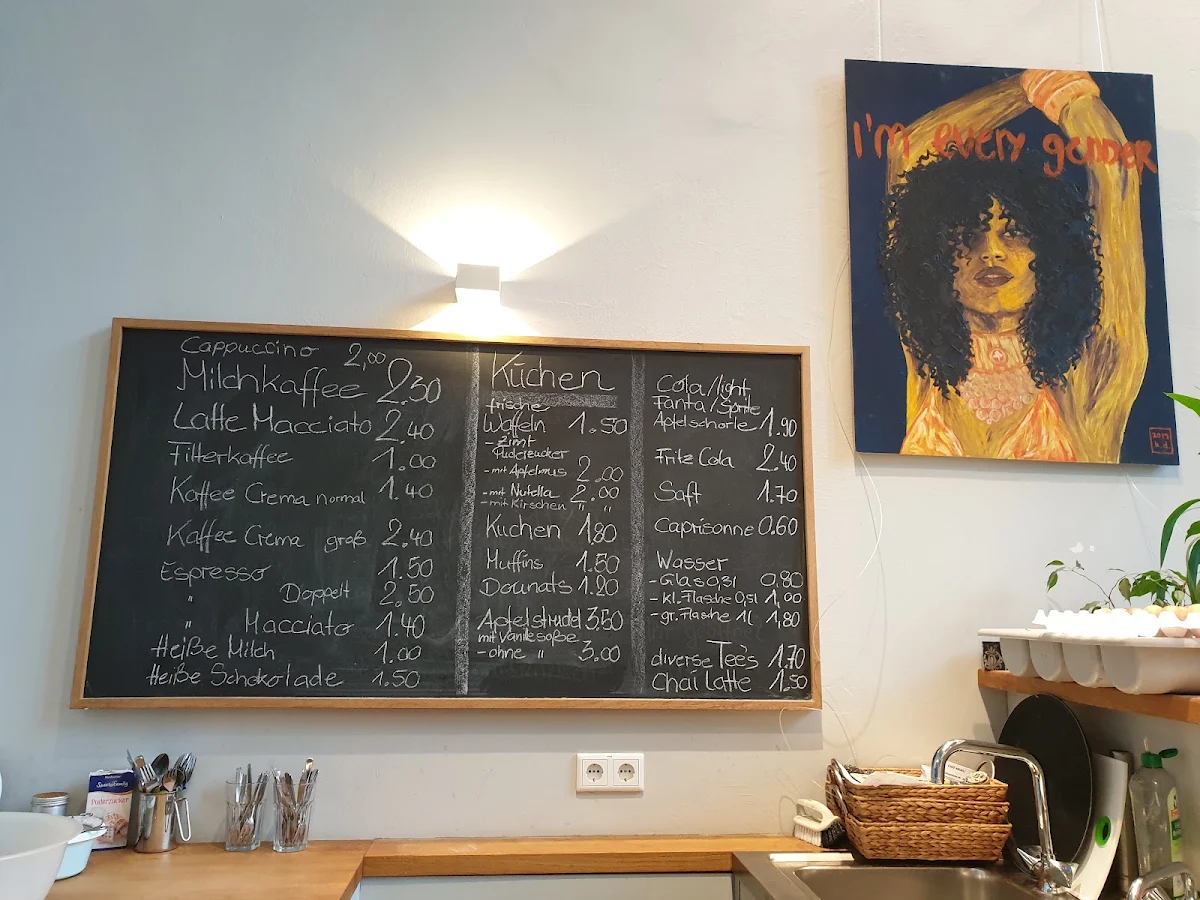 Cappuccino 2,00
Milchkaffee 2.30
Latte Macciato 2.40
Filterkaffee 1.00
Kaffee Crema normal 1.40
Kaffee Crema groß 2.40
Espresso 1.50
" Doppelt 2.50
" Macciato 1.40
Heiße Milch 1.00
Heiße Schokolade 1.50
Kuchen
frische
Waffeln 1.50
- Zimt
Puderzucker
- mit Apfelmus 2.00
- mit Nutella 2.00
- mit Kirschen " "
Kuchen 1,80
Muffins 1.50
Dounats 1.20
Apfelstrudel 3,50
mit Vanillesoße
- ohne " 3,00
Cola/light
Fanta/Sprite
Apfelschorle 1,90
Fritz Cola 2.40
Saft 1.70
Caprisonne 0.60
Wasser
- Glas 0,3l 0,80
- kl. Flasche 0,5l 1,00
- gr. Flasche 1l 1,80
diverse Tee's 1.70
Chai Latte 1,50
I'm every gender
2019
k.d.
Puderzucker